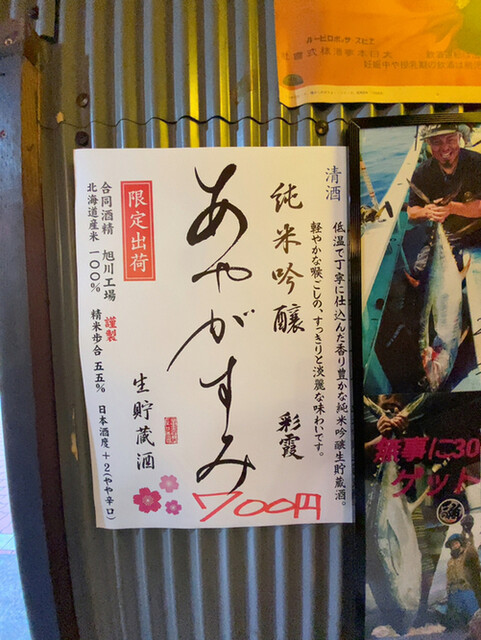 清酒
低温で丁寧に仕込んだ香り豊かな純米吟醸生貯蔵酒。
軽やかな喉ごしの、すっきりと淡麗な味わいです。
純米吟醸 彩霞
あやがすみ
700円
生貯蔵酒
限定出荷
合同酒精 旭川工場 謹製
北海道産米 一〇〇% 精米歩合 五五% 日本酒度+2(やや辛口)
無事に30
ゲット